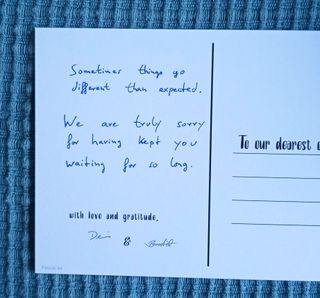 Sometimes things go
different than expected.
We are truly sorry
for having kept you
waiting for so long.
To our dearest
with love and gratitude,
&